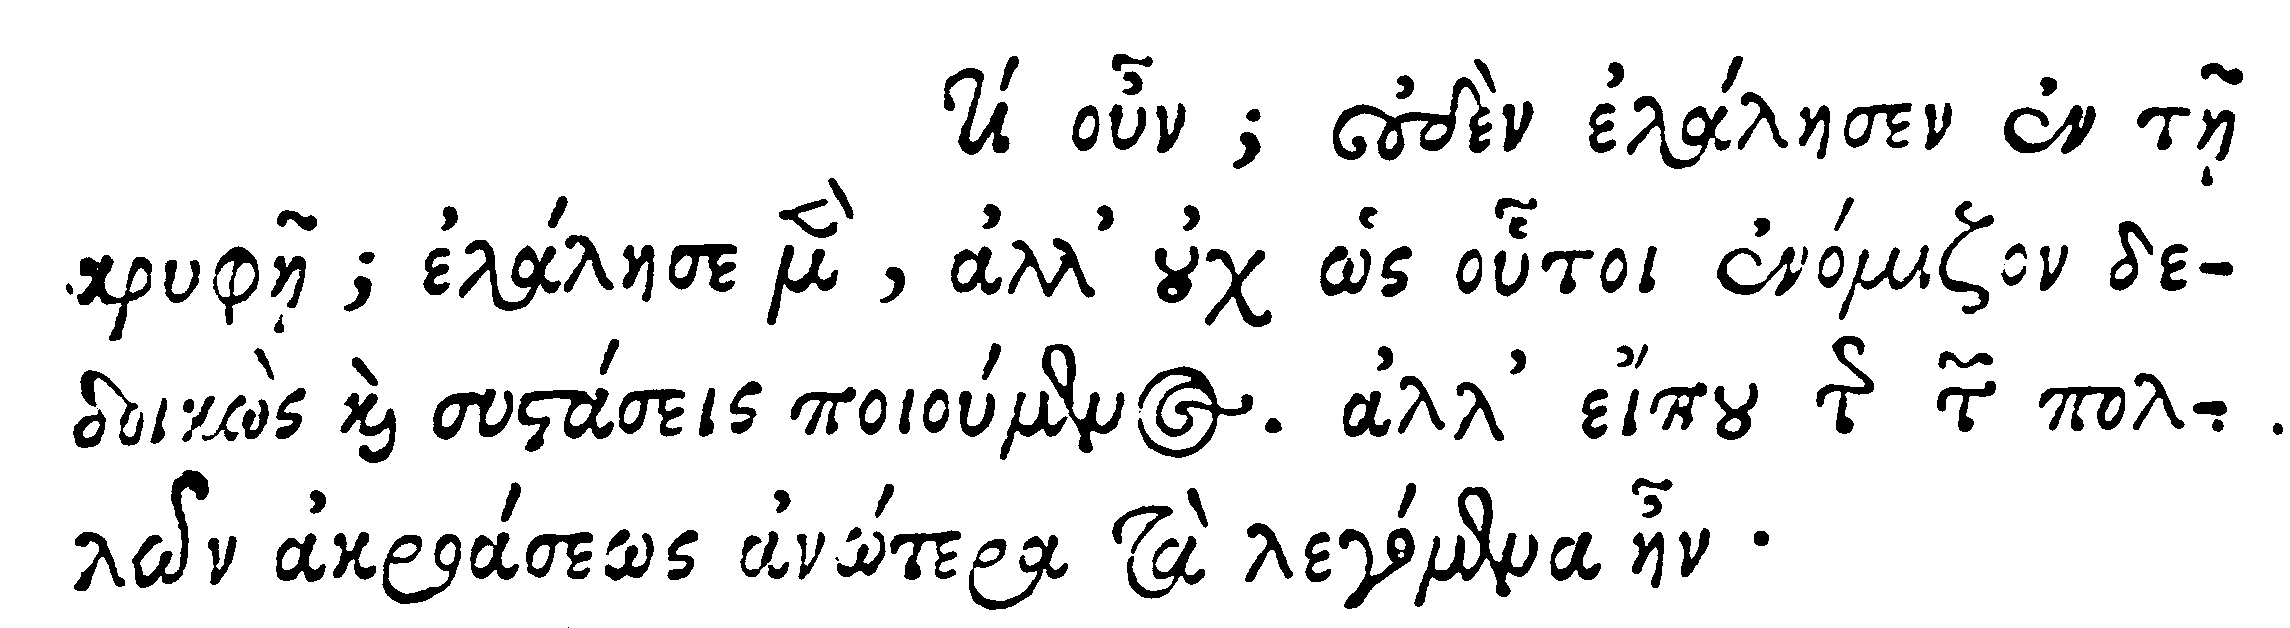 Τί οὖν; οὐδὲν ἐλάλησεν ἐν τῇ
κρυφῇ; ἐλάλησε μὲν, ἀλλ' οὐχ ὡς οὗτοι ἐνόμιζον δε-
δοικὼς καὶ συστάσεις ποιούμενος. ἀλλ' εἴπου τὶ τῆς πολ-
λῶν ἀκροάσεως ἀνώτερα τὰ λεγόμενα ἦν.